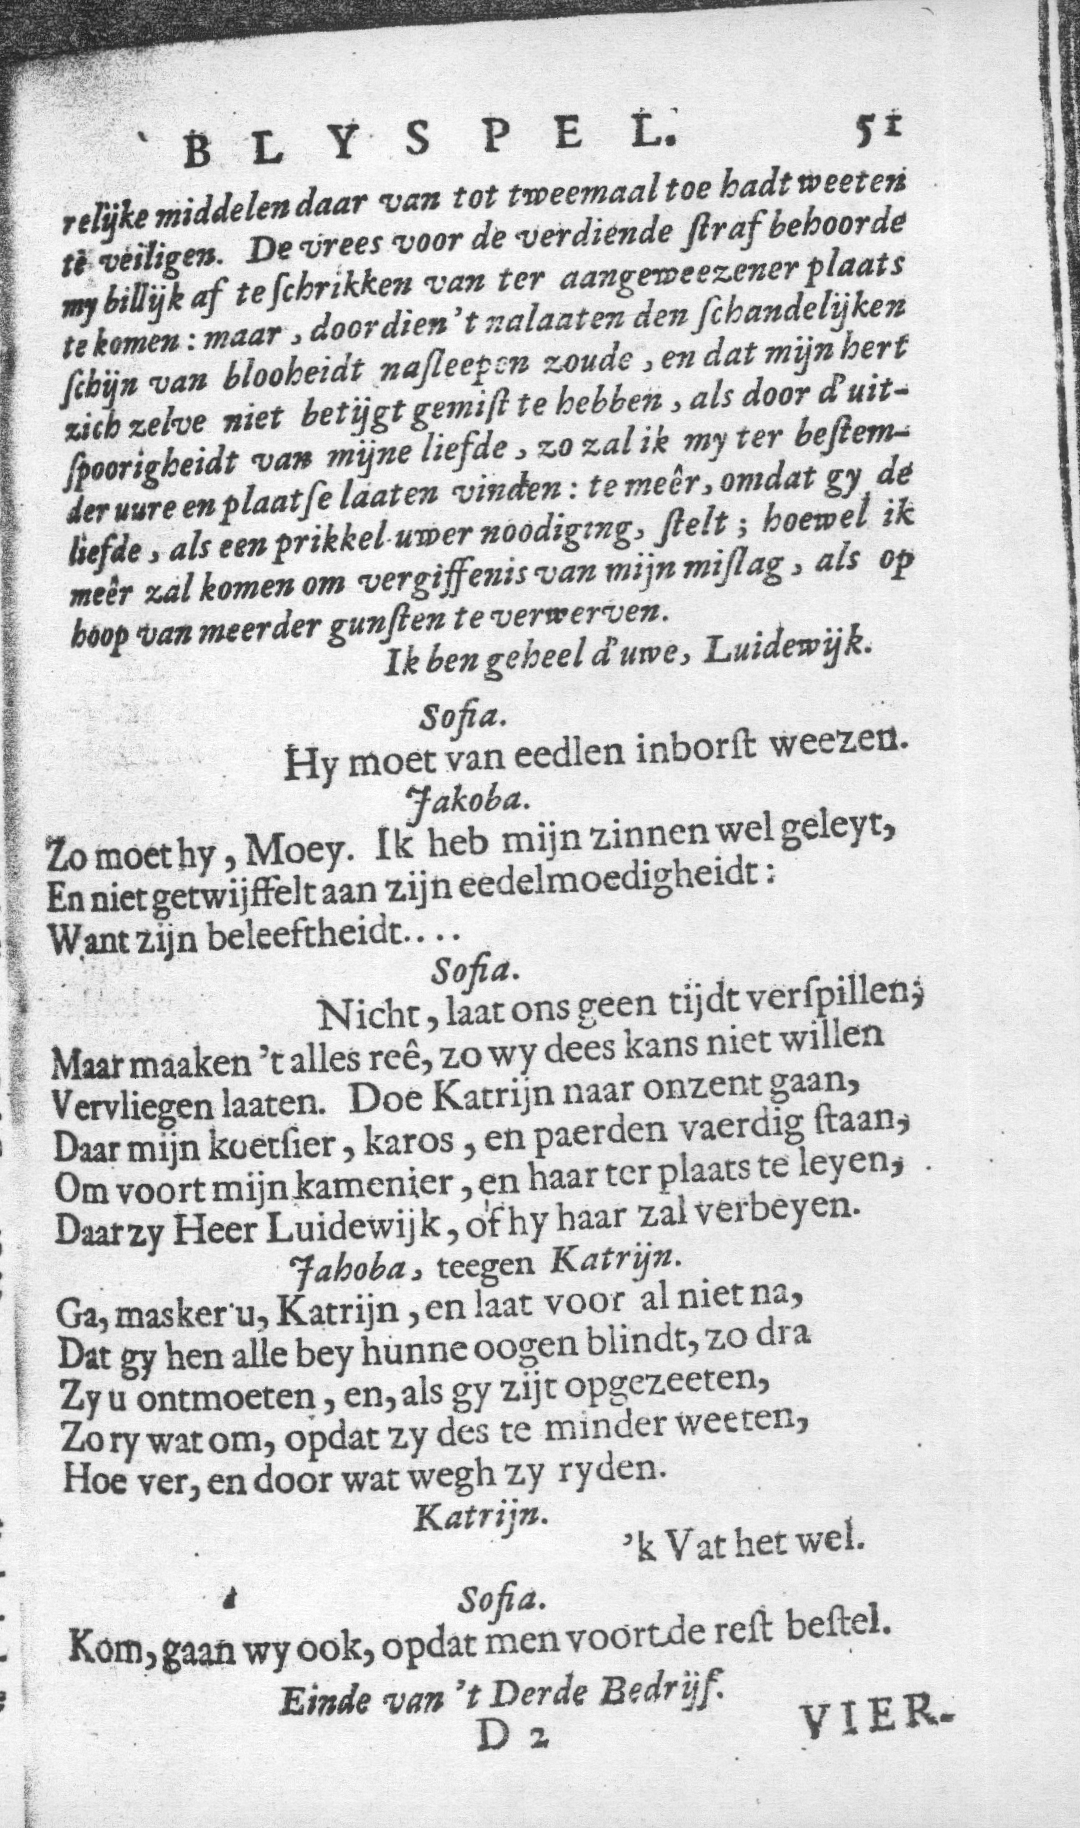 BLYSPEL. 51
relijke middelen daar van tot tweemaal toe hadt weeten
te veiligen. De vrees voor de verdiende ſtraf behoorde
my billijk af te ſchrikken van ter aangeweezener plaats
te komen: maar, doordien 't nalaaten den ſchandelijken
ſchijn van blooheidt naſleepen zoude, en dat mijn hert
zich zelve niet betijgt gemiſt te hebben, als door d'uit-
ſpoorigheidt van mijne liefde, zo zal ik my ter beſtem-
der uure en plaatſe laaten vinden: te meêr, omdat gy de
liefde, als een prikkel uwer noodiging, ſtelt; hoewel ik
meêr zal komen om vergiffenis van mijn miſlag, als op
hoop van meerder gunſten te verwerven.
Ik ben geheel d'uwe, Luidewijk.
Sofia.
Hy moet van eedlen inborſt weezen.
Jakoba.
Zo moet hy, Moey. Ik heb mijn zinnen wel geleyt,
En niet getwijffelt aan zijn eedelmoedigheidt:
Want zijn beleeftheidt....
Sofia.
Nicht, laat ons geen tijdt verſpillen;
Maar maaken 't alles reê, zo wy dees kans niet willen
Vervliegen laaten. Doe Katrijn naar onzent gaan,
Daar mijn koetſier, karos, en paerden vaerdig ſtaan,
Om voort mijn kamenier, en haar ter plaats te leyen,
Daar zy Heer Luidewijk, of hy haar zal verbeyen.
Jahoba, teegen Katrijn.
Ga, masker u, Katrijn, en laat voor al niet na,
Dat gy hen alle bey hunne oogen blindt, zo dra
Zy u ontmoeten, en, als gy zijt opgezeeten,
Zo ry wat om, opdat zy des te minder weeten,
Hoe ver, en door wat wegh zy ryden.
Katrijn.
'k Vat het wel.
Sofia.
Kom, gaan wy ook, opdat men voort de reſt beſtel.
Einde van 't Derde Bedrijf.
D 2 VIER-